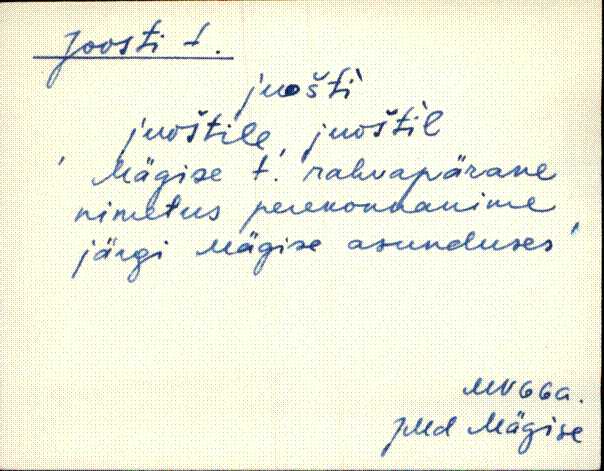 Joosti t.
juošti
juoštile, juoštil
' Mägise t. rahvapärane
nimetus perekonnanime
järgi Mägise asunduses '
MV66a.
JMd Mägise